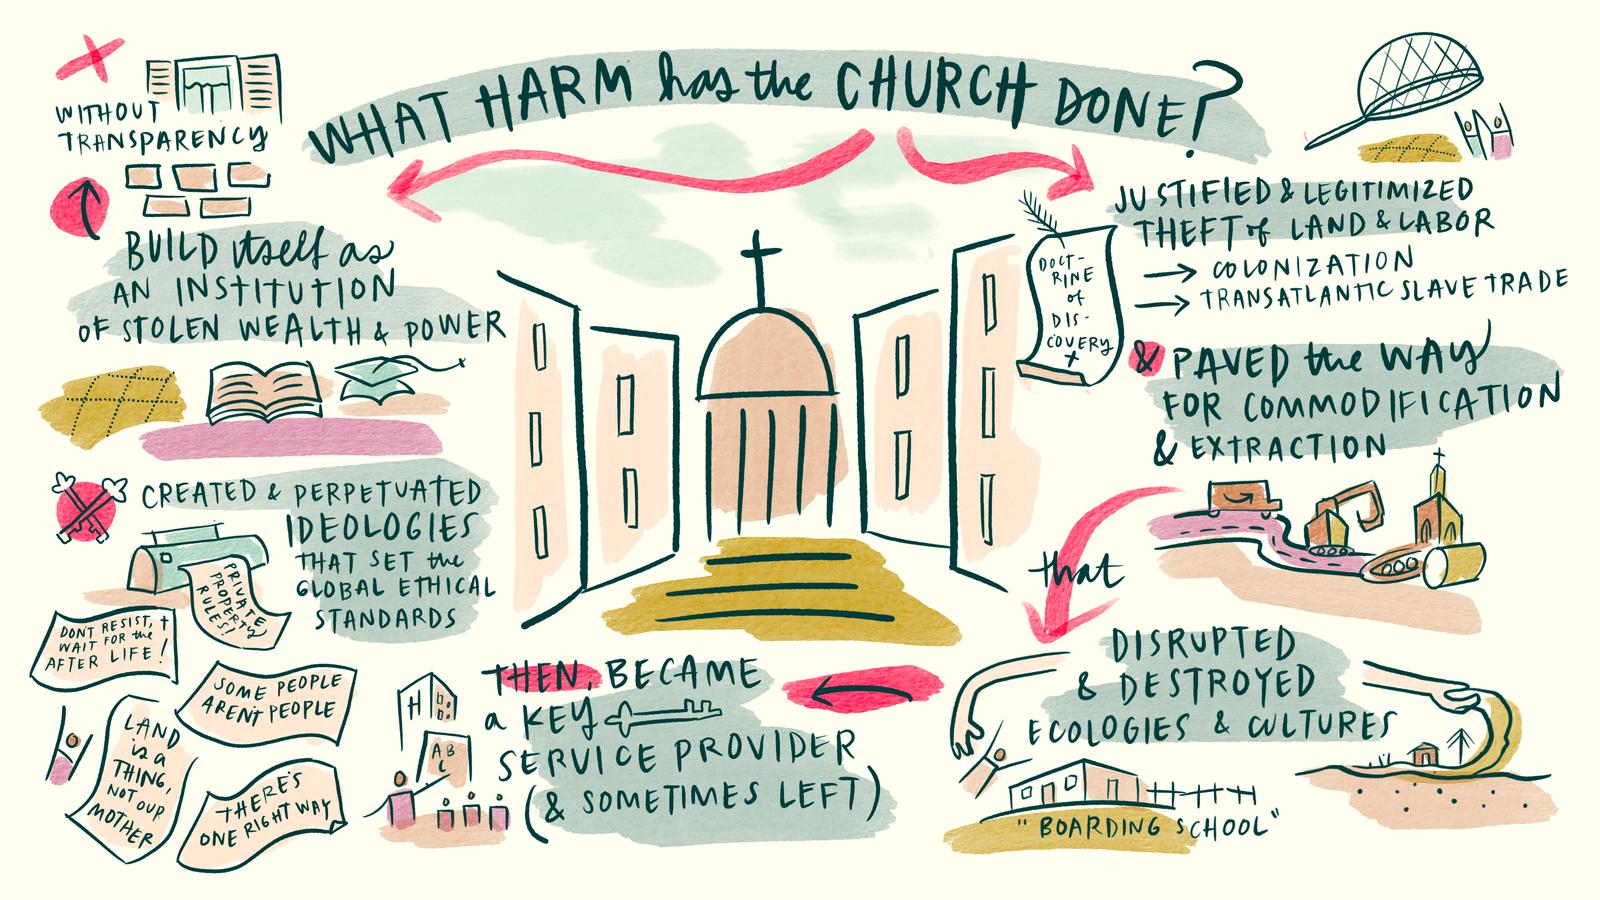 WHAT HARM has the CHURCH DONE?
WITHOUT
TRANSPARENCY
BUILD itself as
AN INSTITUTION
OF STOLEN WEALTH & POWER
CREATED & PERPETUATED
IDEOLOGIES
THAT SET the
GLOBAL ETHICAL
STANDARDS
PRIVATE
PROPERTY
RULES!
DON'T RESIST,
WAIT FOR the
AFTER LIFE!
SOME PEOPLE
AREN'T PEOPLE
LAND
is a
THING,
NOT OUR
MOTHER
THERE'S
ONE RIGHT WAY
DOCT-
RINE
of
DIS-
COVERY
JUSTIFIED & LEGITIMIZED
THEFT of LAND & LABOR
→ COLONIZATION
→ TRANSATLANTIC SLAVE TRADE
& PAVED the WAY
FOR COMMODIFICATION
& EXTRACTION
that
DISRUPTED
& DESTROYED
ECOLOGIES & CULTURES
"BOARDING SCHOOL"
THEN, BECAME
a KEY
SERVICE PROVIDER
(& SOMETIMES LEFT)
H
AB
C